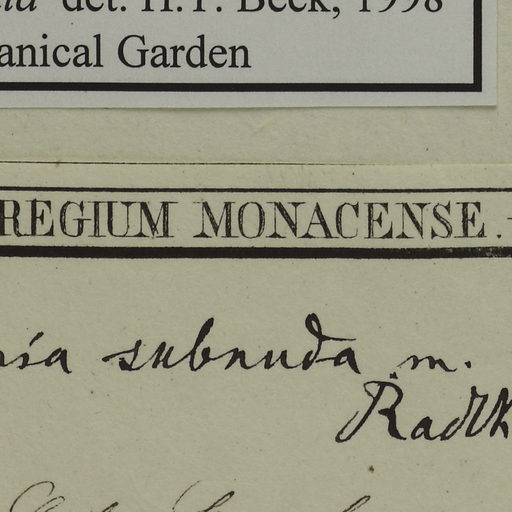 det. H.T. Beck, 1998
anical Garden
REGIUM MONACENSE.
subnuda m.
Radlk